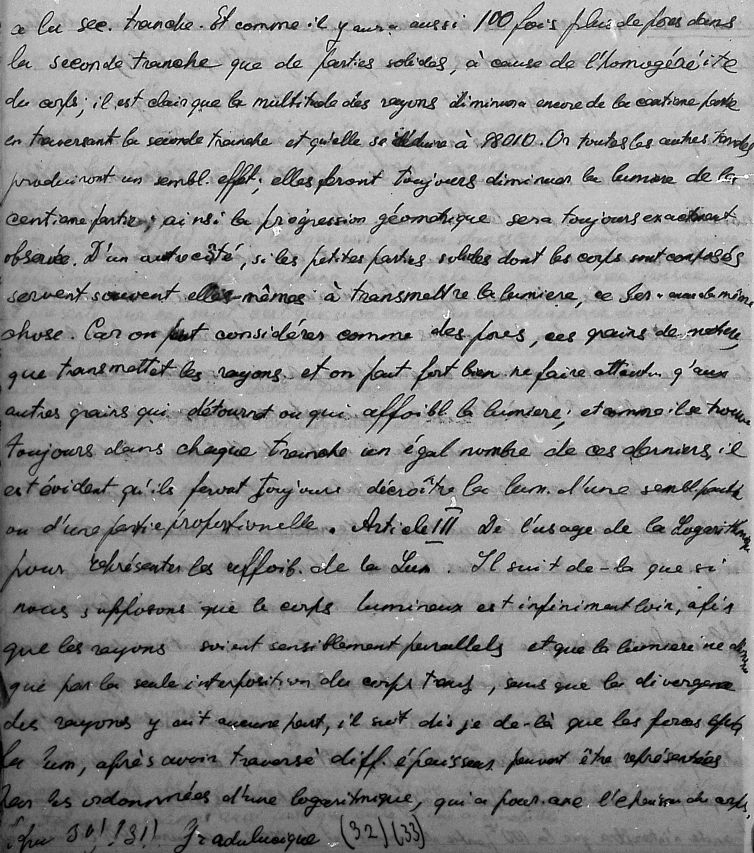 a la sec. tranche. Et comme il y aura aussi 100 fois plus de pores dans
la seconde tranche que de parties solides, à cause de l'homogénéité
du corps; il est clair que la multitude des rayons diminuera encore de la centieme partie
en traversant la seconde tranche et qu'elle se réduira à 98010. Or toutes les autres tranches
produiront un sembl. effet: elles feront toujours diminuer la lumiere de la
centieme partie; ainsi la progression géometrique sera toujours exactement
observée. D'un autre côté, si les petites parties solides dont les corps sont composés
servent souvent elles-mêmes à transmettre la lumiere, ce sera de même
chose. Car on peut considérer comme des pores, ces grains de matiere,
que transmettet les rayons et on peut fort bien ne faire attention q'aux
autres grains qui détournet ou qui affoibl la lumiere; et comme il se trouve
toujours dans chaque tranche un égal nombre de ces derniers, il
est évident qu'ils feront toujours décroître la lum. d'une sembl. partie
ou d'une partie proportionelle. Article III De l'usage de la Logarithmique
pour représenter les affoib. de la Lum. Il suit de-la que si
nous supposons que le corps lumineux est infiniment loin, afin
que les rayons soient sensiblement parallels et que la lumiere ne
que par la seule interposition du corps trans, sans que la divergence
des rayons y ait aucune part, il suit dis je de-là que les forces
la lum, après avoir traversé diff. épaisseurs peuvent être représentées
par les ordonnées d'une logaritmique, qui a pour axe l'epaisseur du corps.
(32) (33)